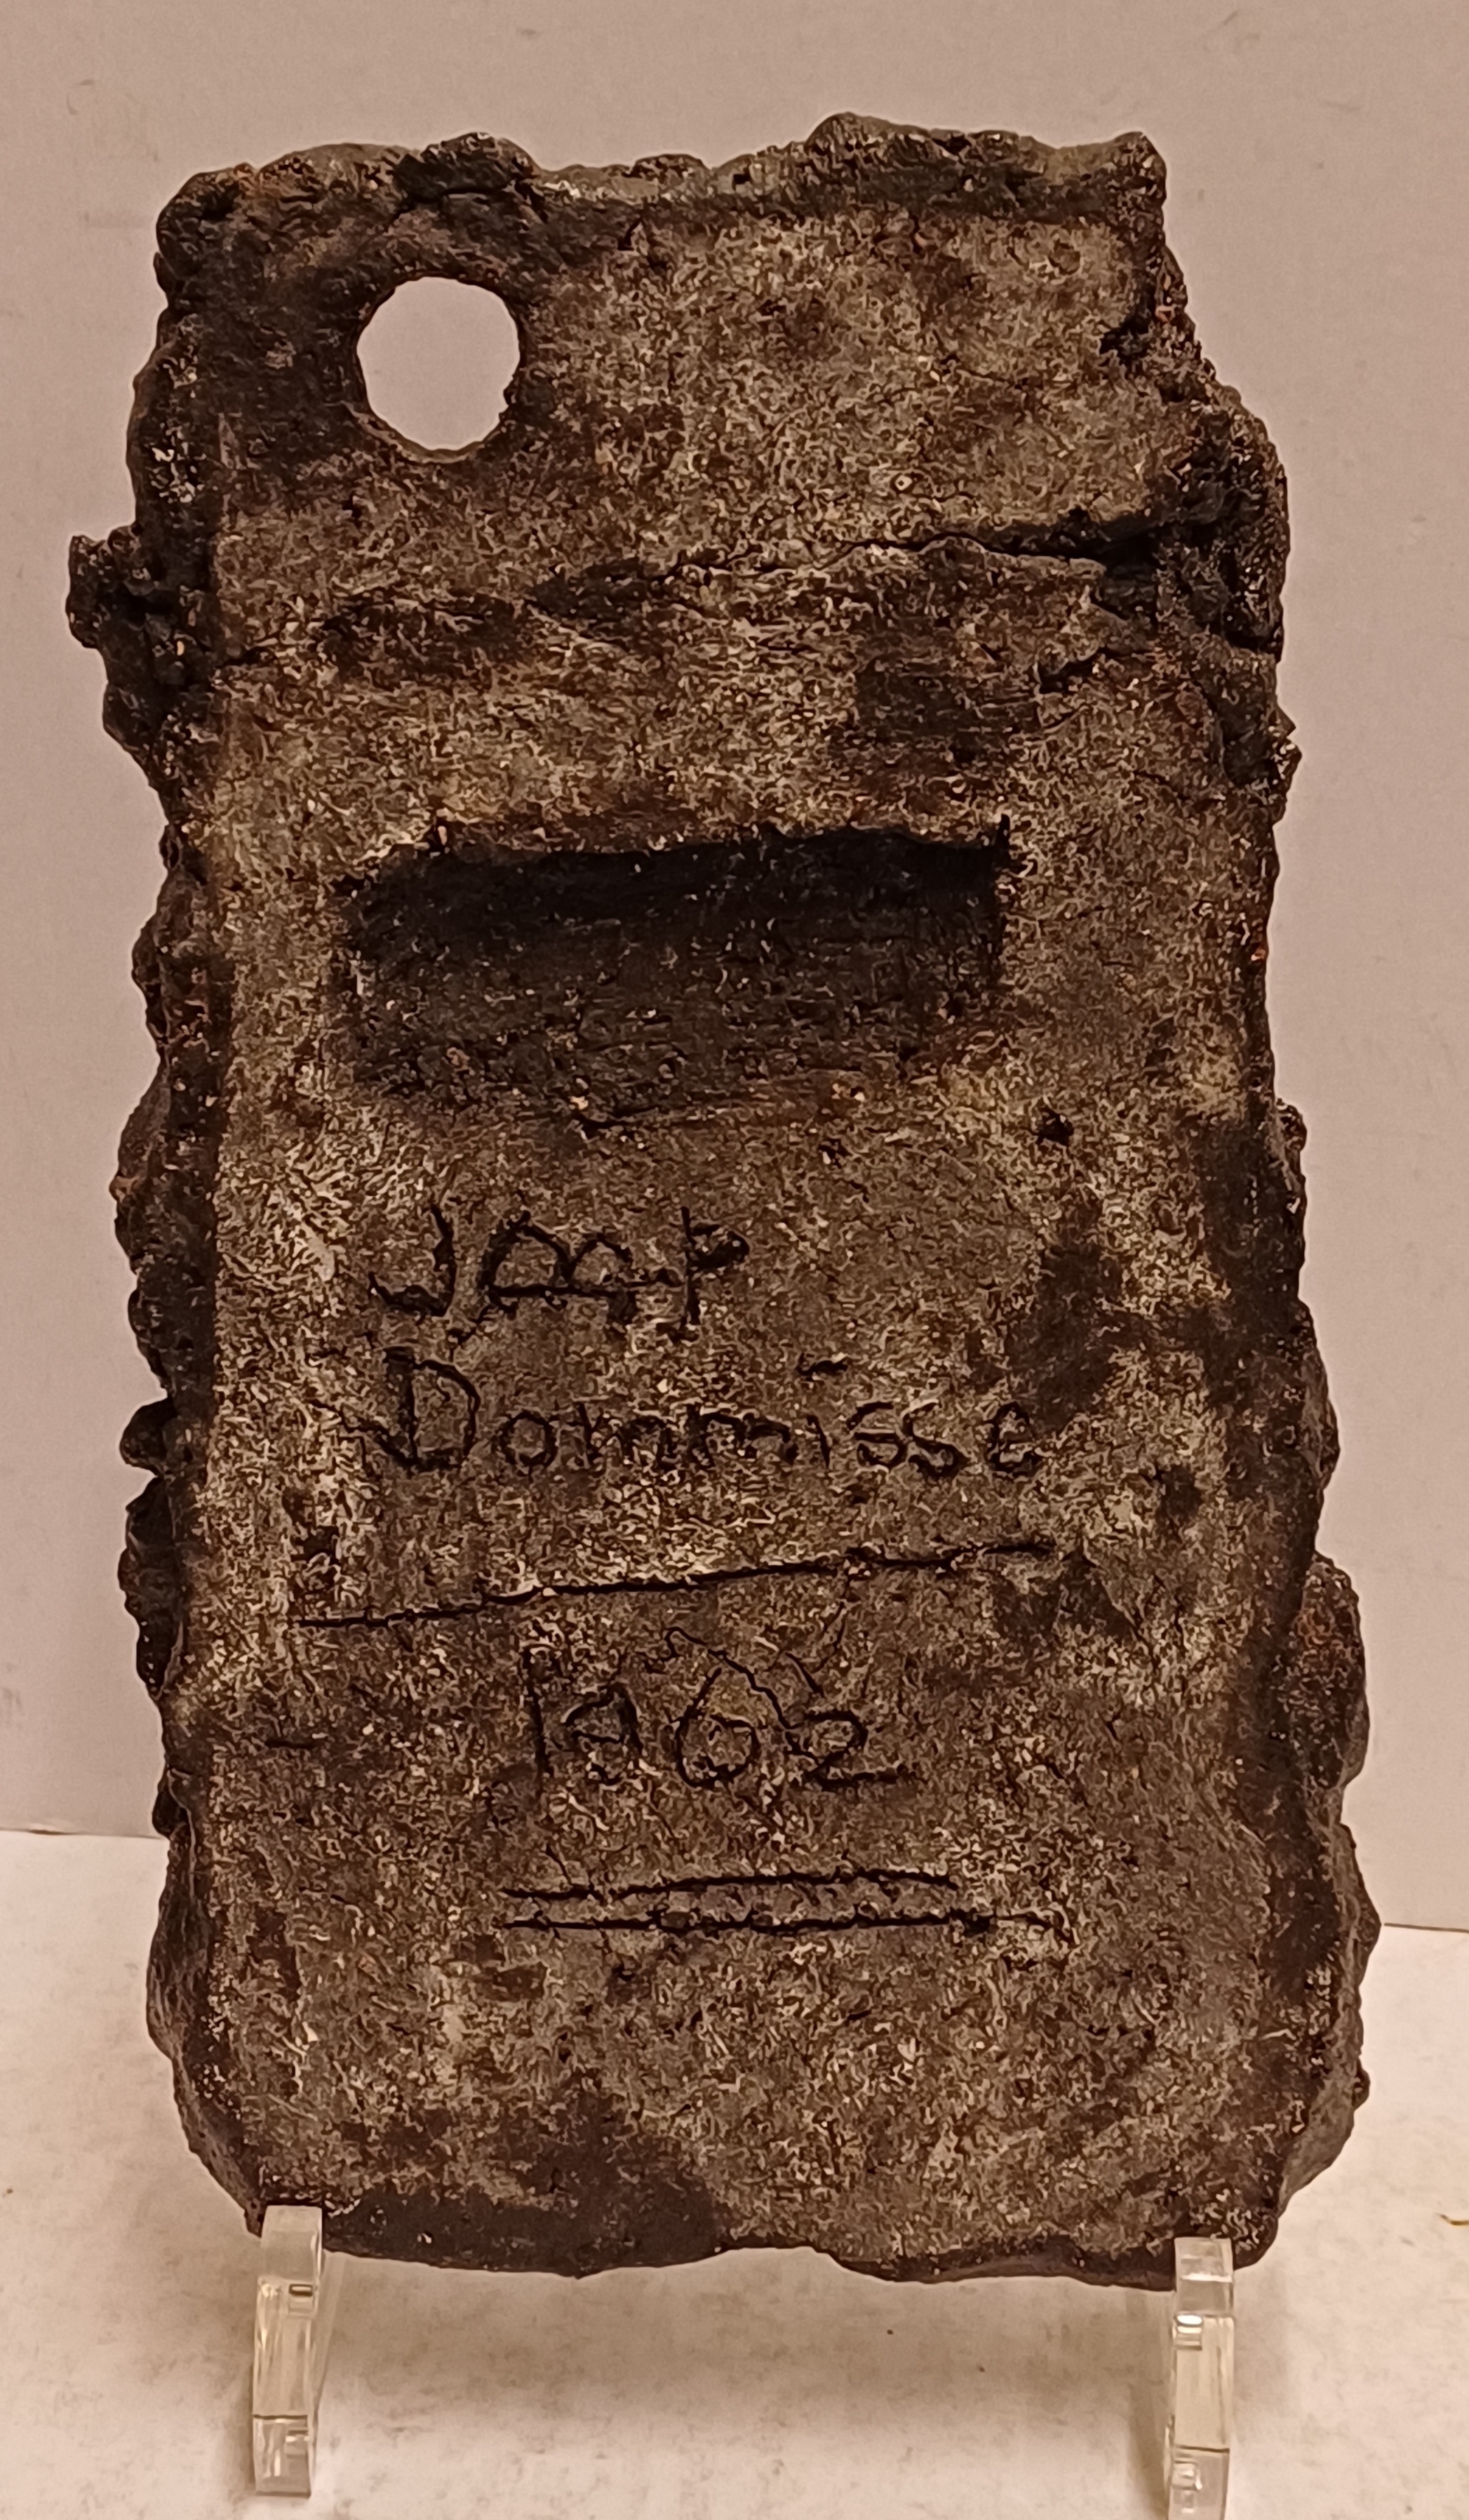 Jaap
Dommisse
1962